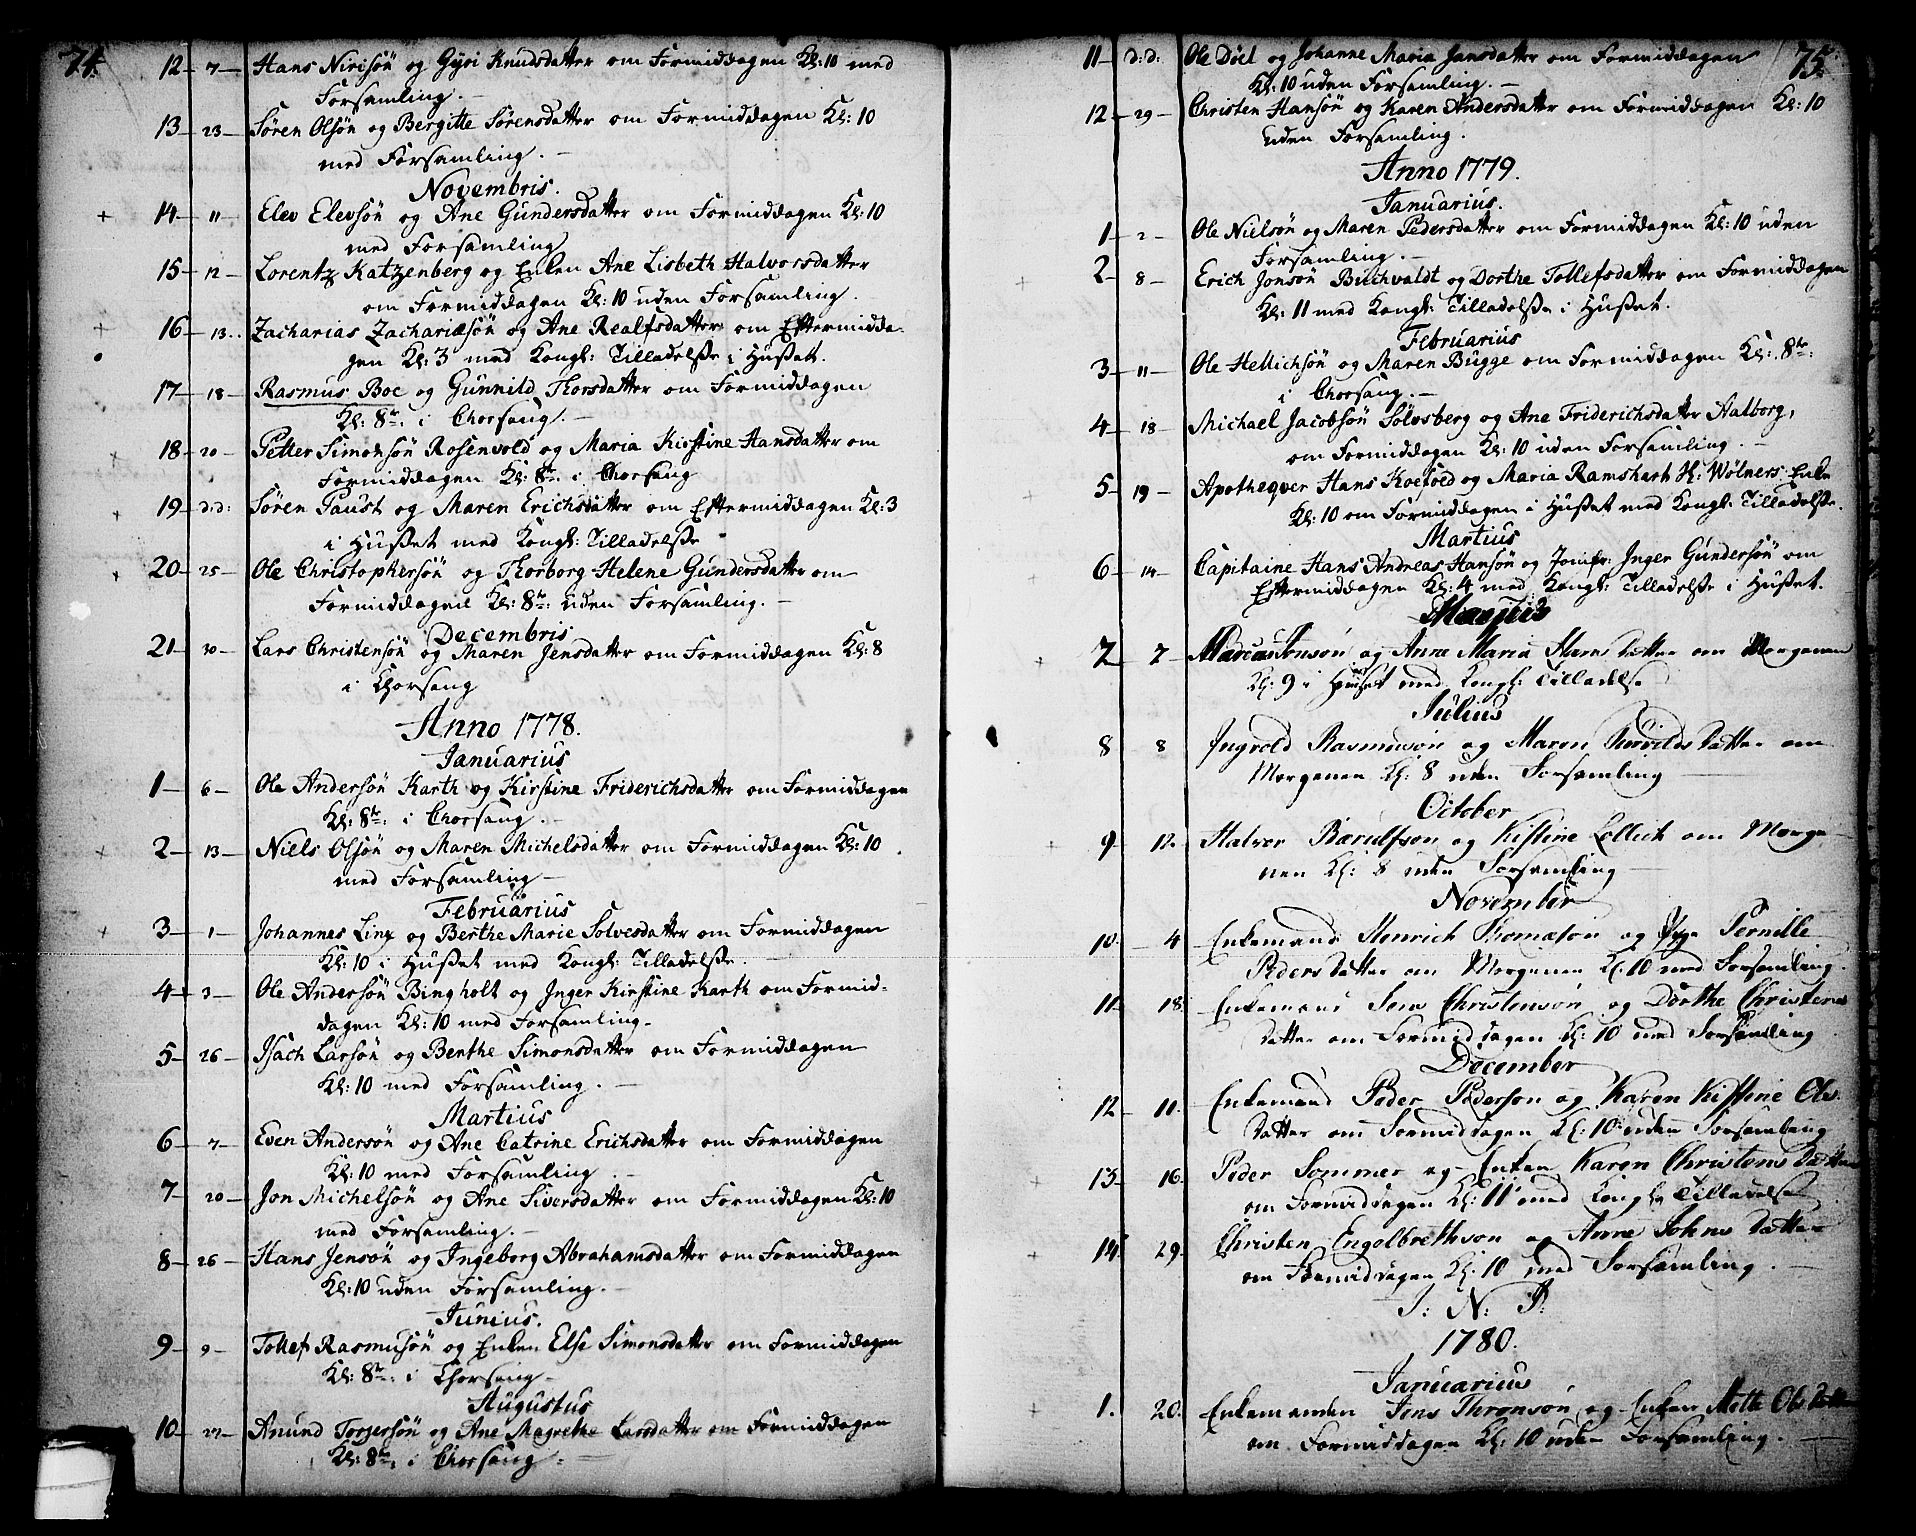 74.
12 – 7 – Hans Nirisøn og Gyri Knudsdatter om Formiddagen Kl: 10 med
Forsamling. –
13 – 23 – Søren Olsøn og Bergitte Sørensdatter om Formiddagen Kl: 10
med Forsamling. –
Novembris.
+ 14 – 11 – Elev Elevsøn og Ane Gundersdatter om Formiddagen Kl: 10
med Forsamling
15 – 12 – Lorentz Katzenberg og Enken Ane Lisbeth Halvorsdatter
om Formiddagen Kl: 10 uden Forsamling.
+ 16 – 13. Zacharias Zachariæsøn og Ane Realfsdatter om Eftermidda-
gen Kl: 3 med Kongl: Tilladelsße i Hußet.
+ 17 – 18 – Rasmus Boe og Gunnild Thorsdatter om Formiddagen
Kl: 8te: i Chorsang. –
+ 18 – 20 – Petter Simonsøn Rosenvold og Maria Kirstine Hansdatter om
Formiddagen Kl: 8te: i Chorsang
+ 19 – d: d: Søren Paust og Maren Erichsdatter om Eftermiddagen Kl: 3
i Hußet med Kongl: Tilladelsße
+ 20 – 25 – Ole Christophersøn og Thorborg Helene Gundersdatter om
Formiddagen Kl: 8te: uden Forsamling. –
Decembris
21 – 30 – Lars Christensøn og Maren Jensdatter om Formiddagen Kl: 8
i Chorsang
Anno 1778.
Januarius
+ 1 – 6 – Ole Andersøn Karth og Kirstine Friderichsdatter om Formiddagen
Kl: 8te: i Chorsang. –
+ 2 – 13 – Niels Olsøn og Maren Michelsdatter om Formiddagen Kl: 10
med Forsamling –
Februarius
+ 3 – 1 – Johannes Linx og Berthe Marie Solvesdatter om Formiddagen
Kl: 10 i Hußet med Kongl: Tilladelsße.
4 – 3 – Ole Andersøn Bingholt og Inger Kirstine Karth om Formid-
dagen Kl: 10 med Forsamling –
5 – 26 – Isach Larsøn og Benthe Simonsdatter om Formiddagen
Kl: 10 med Forsamling. –
Martius
6 – 7 – Even Andersøn og Ane Catrine Erichsdatter om Formiddagen
Kl: 10 med Forsamling. –
7 – 20 – Jon Michelsøn og Ane Siversdatter om Formiddagen Kl: 10
med Forsamling. –
8 – 26 – Hans Jensøn og Ingeborg Abrahamsdatter om Formiddagen
Kl: 10 uden Forsamling. –
Junius.
9 – 9 – Tollef Rasmusøn og Enken Else Simonsdatter om Formiddagen
Kl: 8te: i Chorsang –
Augustus
10 – 27 – Anund Torgersøn og Ane Magrethe Larsdatter om Formiddagen
Kl: 8te: i Chorsang –
75.
11 – d: d: Ole Døel og Johanne Maria Jansdatter om Formiddagen
Kl: 10 uden Forsamling. –
12 – 29 – Christen Hansøn og Karen Andersdatter om Formiddagen Kl: 10
uden Forsamling.
Anno 1779.
Januarius.
1 – 2 – Ole Nielsøn og Maren Pedersdatter om Formiddagen Kl: 10 uden
Forsamling. –
2 – 8 – Erich Jonsøn Buchvaldt og Dorthe Tollefsdatter om Formiddagen
Kl: 11 med Kongl: Tilladelsße i Hußet.
Februarius
3 – 11 – Ole Hellichsøn og Maren Bugge om Formiddagen Kl: 8te:
i Chorsang. –
4 – 18 – Michael Jacobsøn Solvsberg og Ane Friderichsdatter Aalborg,
om Formiddagen Kl: 10 uden Forsamling.
+ 5 – 19 – Apotheqver Hans Koefoed og Maria Ramshart H: Wølners Enke
Kl: 10 om Formiddagen i Hußet med Kongl: Tilladelsße.
Martius
6 – 14 – Capitaine Hans Andreas Hansøn og Jomfr: Inger Gundersøn om
Eftermiddagen Kl: 4 med Kongl: Tilladelsße i Hußet.
Majus
+ 7 – 7 – Jonsøn og Anne Maria Hans Datter om Morgenen
Kl: 9 i Huset med Kongl: Tilladelse
Julius
8 8 Ingvold Rasmusøn og Maren Datter om
Morgenen Kl: 8 uden Forsamling –
October
+ 9 – 12. Halvor Barulfson og Kistine Lollich om Morge-
nen Kl: 8 uden Forsamling –
November
10. – 4 Enkemand Henrich Thomason og Pige Pernille
Peders Datter om Morgenen Kl: 10 med Forsamling.
11 – 18. Enkemand Jens Christensøn og Dorthe Christens
Datter om Formiddagen Kl: 10 med Forsamling
December
12 – 11. Enkemand Peder Pederson og Karen Kistine Ols
Datter om Formiddagen Kl: 10 uden Forsamling
+ 13 – 16. Peder Sommer og Enken Karen Christens Datter
om Formiddagen Kl: 11 med Kongl: Tilladelse
+ 14 29. Christen Engelbrethson og Anne Johns Datter
om Formiddagen Kl: 10 med Forsamling. –
I: N: J:
1780.
Januarius
+ 1. 20. Enkemanden Jens Thronsøn og Enken Mette Ols Datter
om Formiddagen Kl: 10 uden Forsamling. –